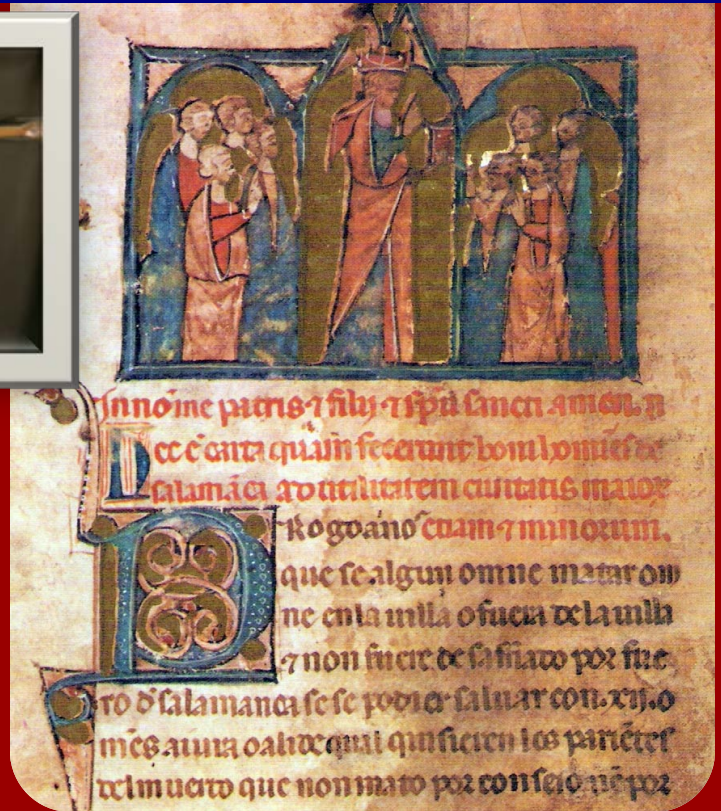 In no͂ie patris ⁊ filij ⁊ sp̃u sancti amen.
Hec ẽ carta quam fecerunt boni homines de
salamãca ad utilitatem ciuitatis maior
Rogo ano etiam ⁊ minorum.
que se algun omne matar om
ne en la uilla o fuera de la uilla
⁊ non fuere desafiado por fue
ro d salamanca se se podier saluar con .xij. o
mẽs aiura o a lide qual quisieren los pariẽtes
del muerto que non mato por conseio nẽ por